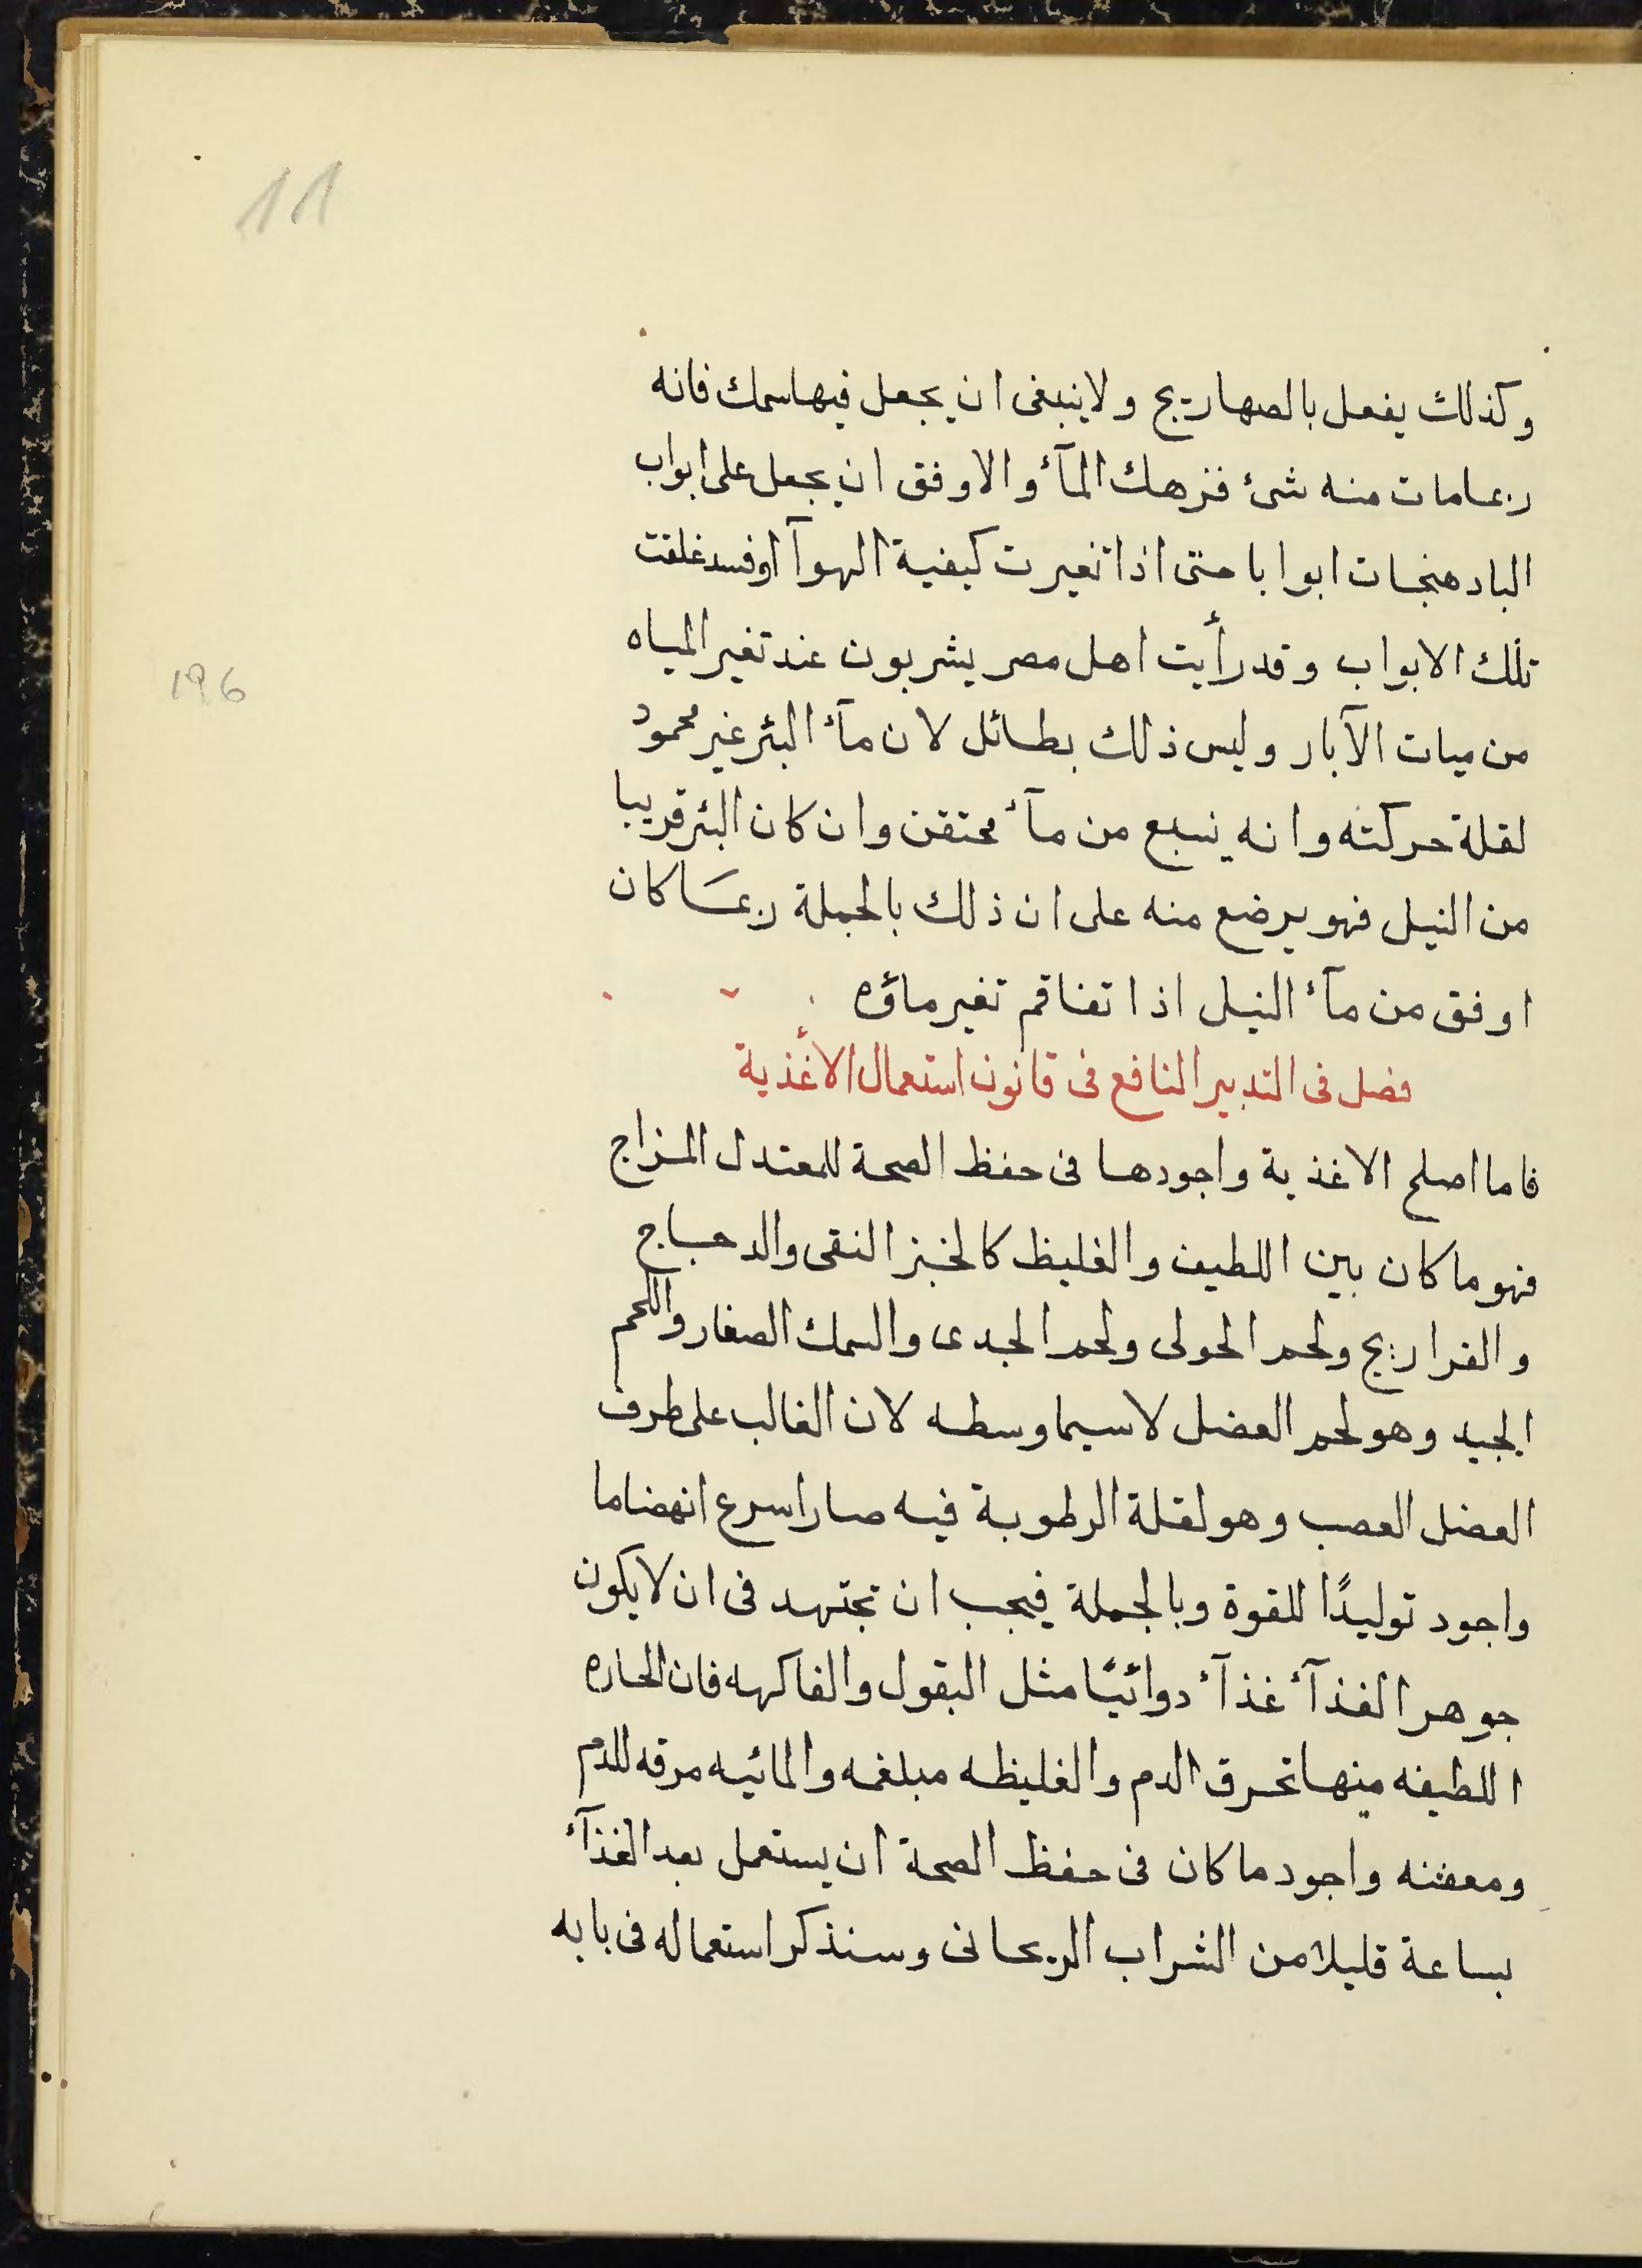 11
وكذلك يفعل بالصهاريج ولا ينبغى ان يجعل فيها سمك فانه
ربما مات منه شئ فزهك المآء والاوفق ان يجعل على ابواب
البادهنجات ابوابا حتى اذا تغيرت كيفية الهوآ اوفسد غلقت
تلك الابواب وقد رأيت اهل مصر يشربون عند تغير المياه
196
من ميات الآبار وليس ذلك بطائل لان مآء البئر غير محمود
لقلة حركته وانه ينبع من مآء محتقن وان كان البئر قريبا
من النيل فهو يرضع منه على ان ذلك بالجملة ربما كان
اوفق من مآء النيل اذا تفاقم تغير ماؤه
فصل فى التدبير النافع فى قانون استعمال الأغذية
فاما اصلح الاغذية واجودها فى حفظ الصحة للمعتدل المزاج
فهو ما كان بين اللطيف والغليظ كالخبز النقى والدجاج
والفراريج ولحم الحولى ولحم الجدى والسمك الصغار واللحم
الجيد وهو لحم العضل لاسيما وسطه لان الغالب على طرف
العضل العصب وهو لقلة الرطوبة فيه صار اسرع انهضاما
واجود توليدًا للقوة وبالجملة فيجب ان تجتهد فى ان لا يكون
جوهر الغذآء غذآء دوائيًا مثل البقول والفاكهه فان الحاره
اللطيفه منها تحرق الدم والغليظه مبلغمه والمائيه مرقه للدم
ومعفنه واجود ما كان فى حفظ الصحة ان يستعمل بعد الغذآء
بساعة قليلا من الشراب الريحانى وسنذكر استعماله فى بابه